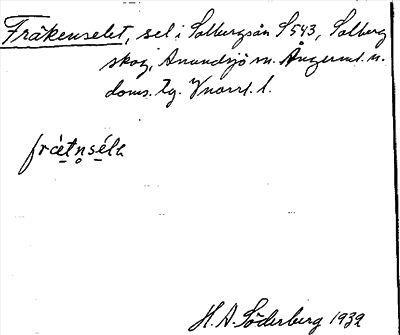 Fräkenselet, sel i Solbergsån S 543, Solberg
skog, Anundsjö sn. Ångerml. n.
doms. tg. Vnorrl. l.
frǽtn̥sélɛ
H. A. Söderberg 1932